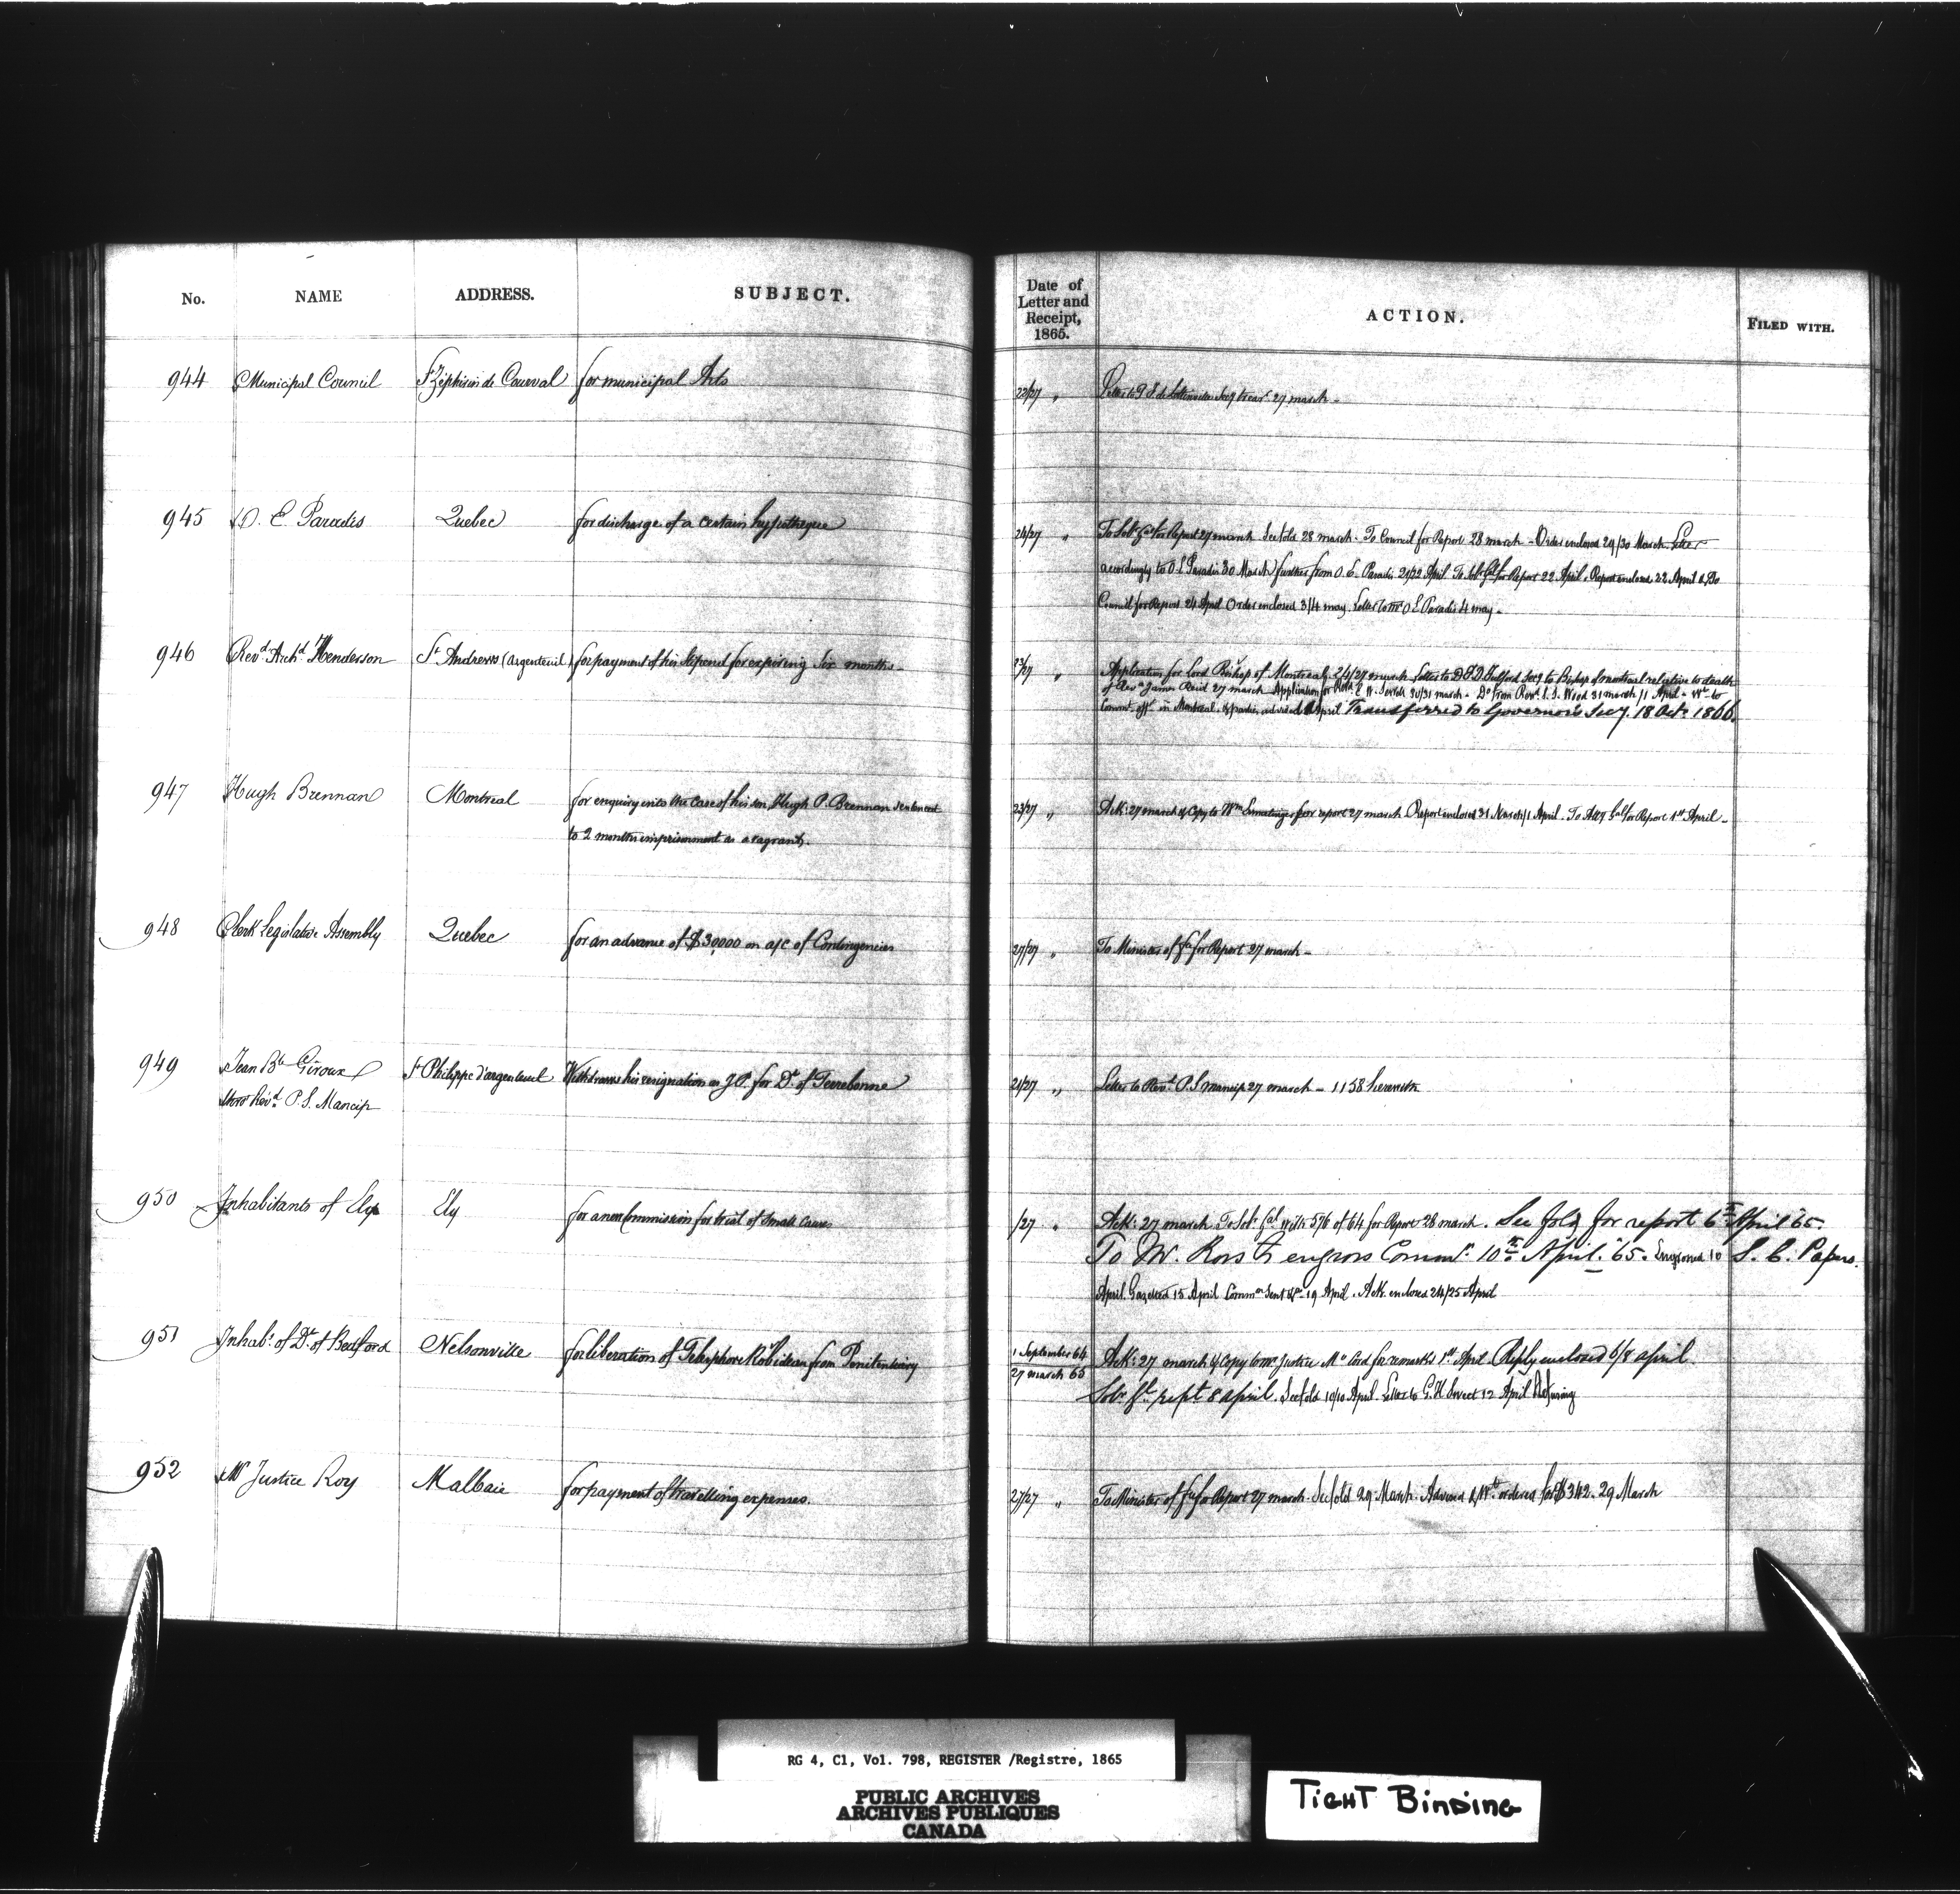 No. NAME ADDRESS. SUBJECT. Date of Letter and Receipt, 1865. ACTION. FILED WITH.
944 Municipal Council St Zéphirin de Courval for municipal Acts 22/27 " Letter to 27 march -
945 O. E. Paradis Quebec for discharge of a certain hypotheque 24/27 " To Solr Gal for Report 27 march See fold 28 march - To Council for Report 28 march - Order enclosed 29/30 March. Letter
accordingly to O. E. Paradis 30 March further from O. E. Paradis 21/22 April To Solr Gal for Report 22 April. Report enclosed 22 April & To
Council for Report 24 April Order enclosed 3/4 may. Letter to Mr O E Paradis 4 may -
946 Revd Archd Henderson St Andrews (Argenteuil) for payment of his stipend for expiring six months - 23/27 " Application for Lord Bishop of Montreal, 24/27 march Letter to Fulford Secy to Bishop of montreal relative to death
of Revd James Reid 27 march Application for Revd E. W. Sewell 30/31 march - Do from Revd S. S. Wood 31 march/1 April - Wt to
in Montreal & parties advised April Transferred to Governor's Secy. 18 Octr 1866.
947 Hugh Brennan Montreal for enquiry into the case of his son, Hugh P. Brennan sentenced 23/27 " Ack: 27 march & Copy to Wm Ermatinger for report 27 march Report enclosed 31 March/1 April. To Atty Gal for Report 1st April -
to 2 months imprisonment as a vagrant.
948 Clerk Legislative Assembly Quebec for an advance of $30,000 on a/c of Contingencies 27/27 " To Minister of Fce for Report 27 march -
949 Jean Bte Giroux St Philippe d'argenteuil Withdraws his resignation as J.P. for Dt of Terrebonne 21/27 " Letter to Revd P. S Mancip 27 march - 1158 herewith
thro' Revd P. S. Mancip
950 Inhabitants of Ely Ely for a new Commission for trial of Small Causes /27 " Ack: 27 march To Solr Gal with 576 of 64 for Report 28 march. See fold for report 6th April '65.
To W. Ross to engross Commn 10th April '65. Engrossed 10 S. C. Papers.
April. Gazetted 15 April Commn Sent &c 19 April. Ack. enclosed 24/25 April
951 Inhabs of Dt of Bedford Nelsonville for liberation of Telesphore Robidoux from Penitentiary 1 September 64 Ack: 27 march & Copy to Mr Justice McCord for remarks 1st April. Reply enclosed 6/8 april
27 march 65 Solr Gl rept 8 april. See fold 10/10 April. Letter to G. H Sweet 12 April Refusing
952 Mr Justice Roy Malbaie for payment of travelling expenses. 27/27 " To Minister of Fce for Report 27 march. See fold 29 March. Advised & Wt ordered for $342. 29 March
RG 4, C1, Vol. 798, REGISTER /Registre, 1865
PUBLIC ARCHIVES
ARCHIVES PUBLIQUES
CANADA
TIGHT BINDING